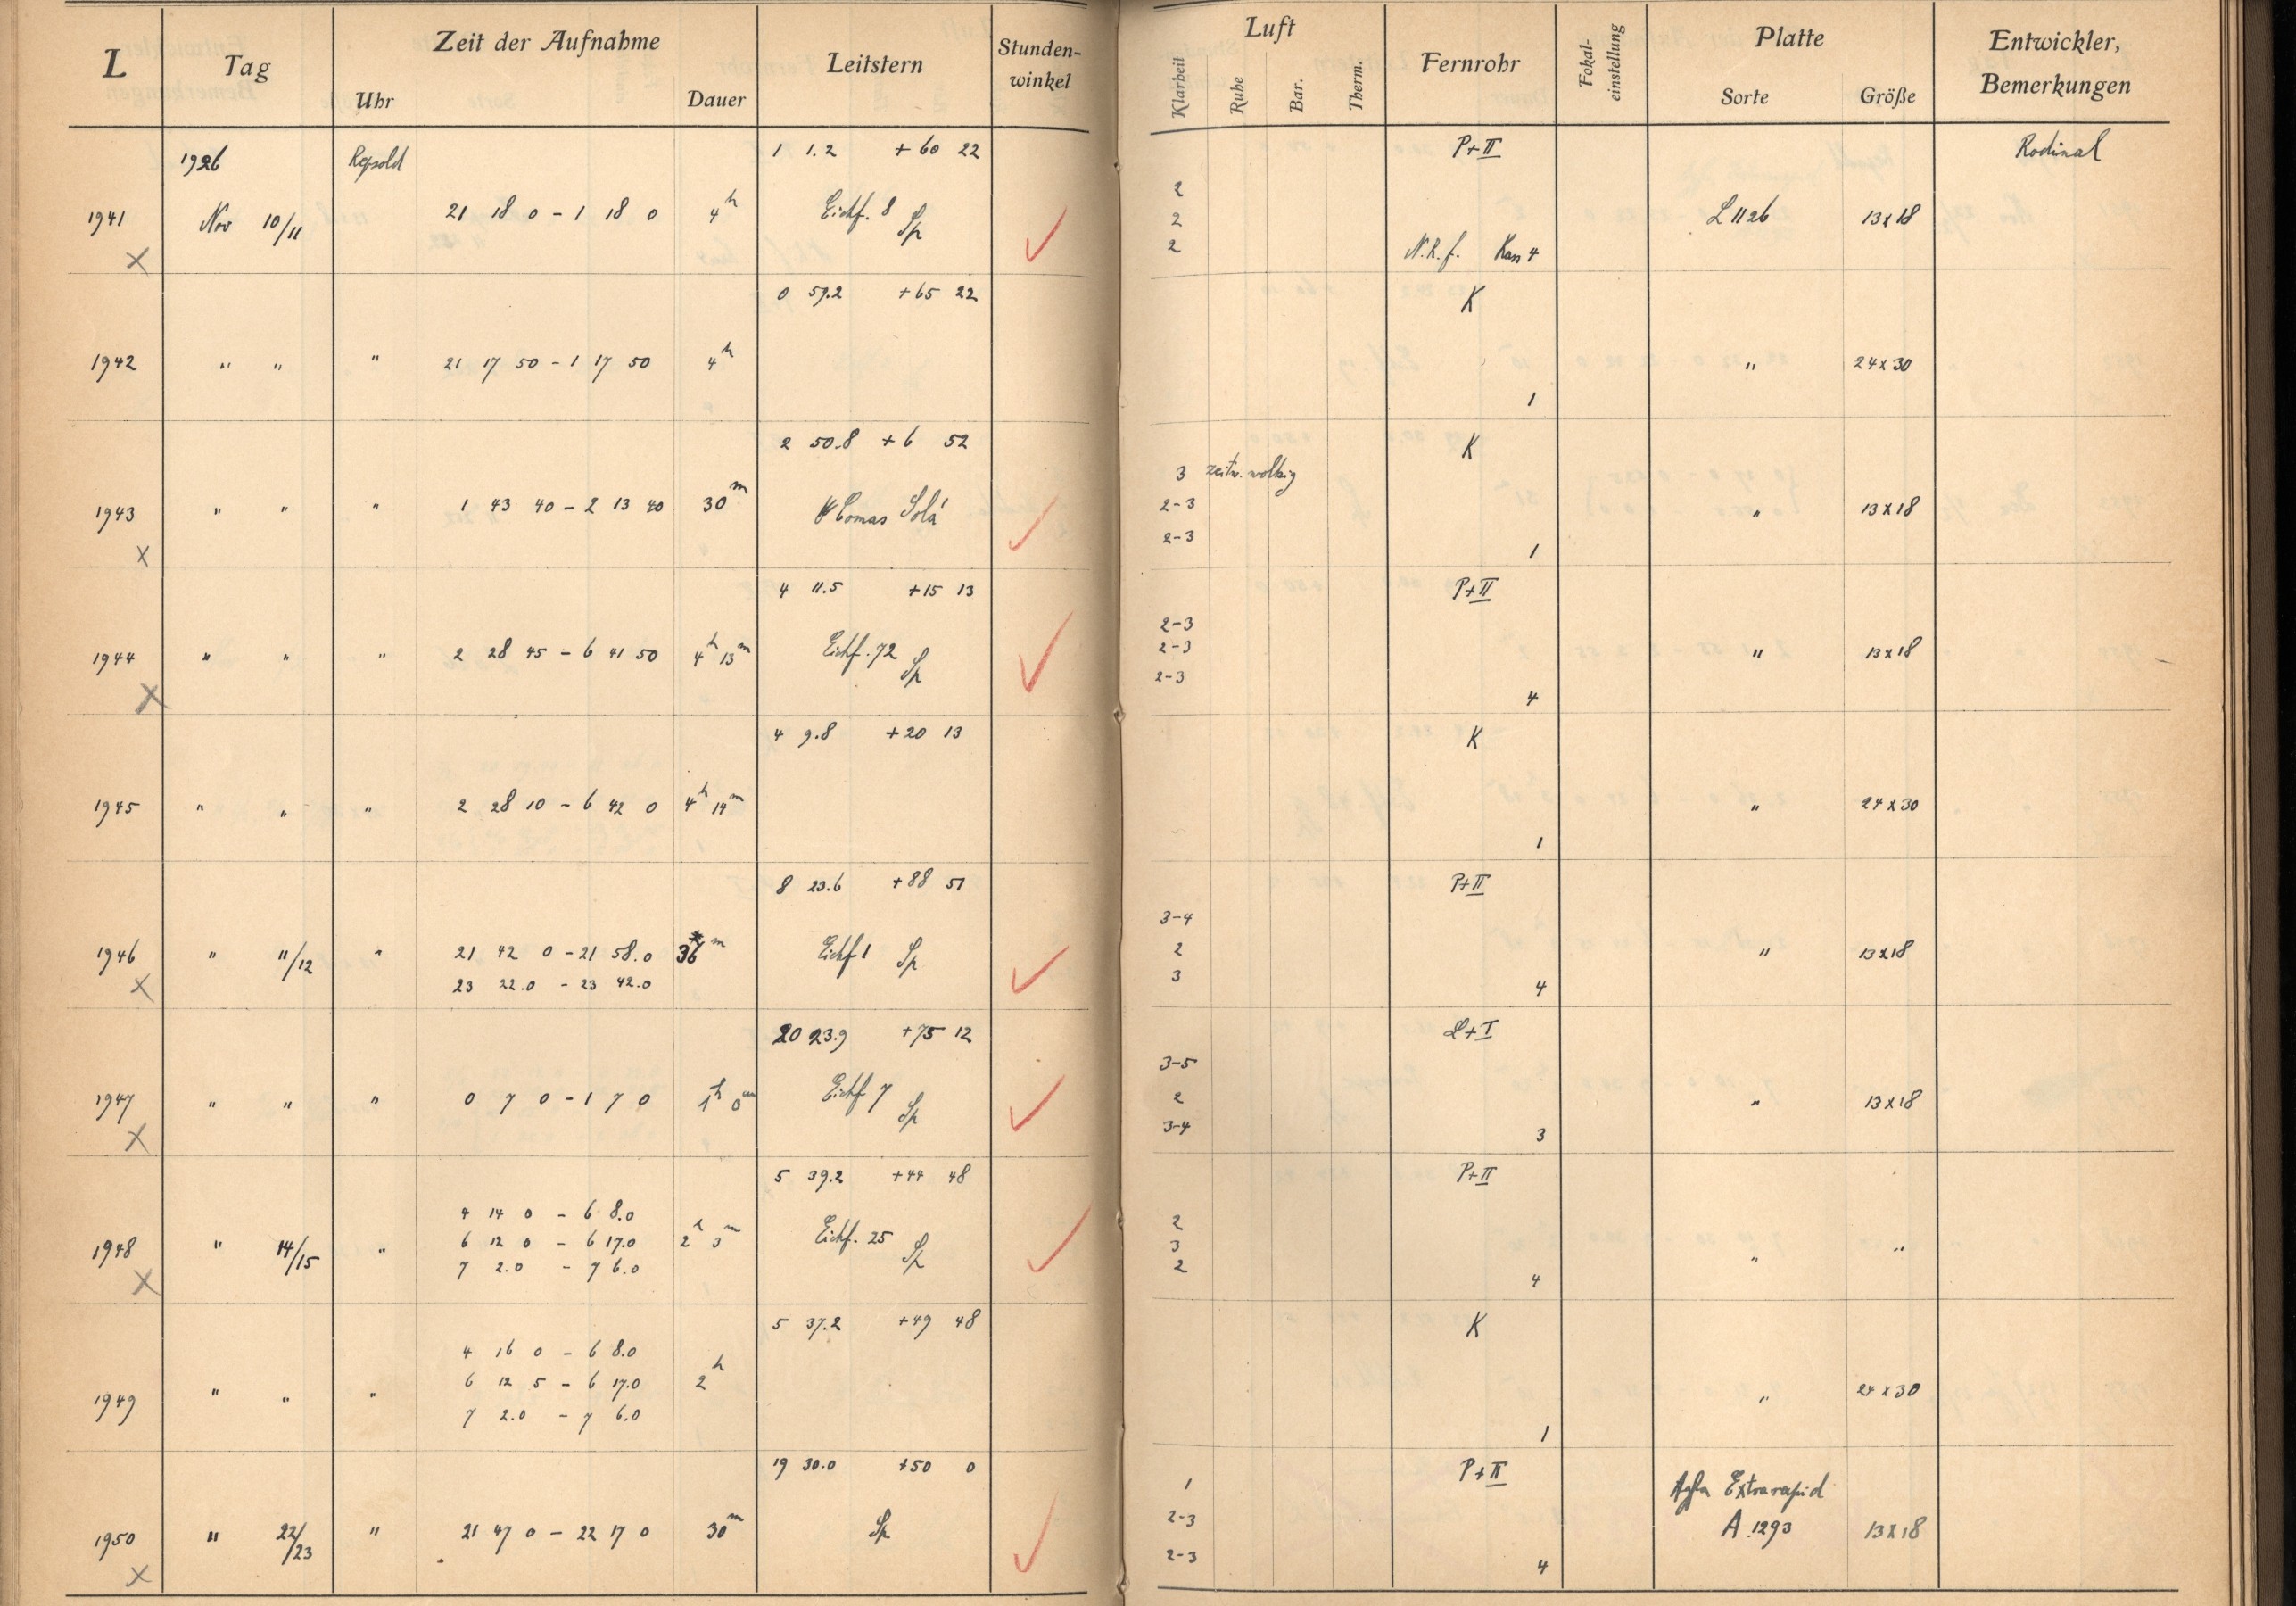 L Tag Zeit der Aufnahme Leitstern Stunden-winkel Luft Fernrohr Fokal-einstellung Platte Entwickler, Bemerkungen
Uhr Dauer Klarheit Ruhe Bar. Therm. Sorte Größe
1926 Repsold 1 1.2 + 60 22 P+II Rodinal
2
1941 Nov 10/11 21 18 0 - 1 18 0 4h Eichf. 8 Sp 2 L 1126 13x18
X 2 N.R.f. Kass 4
0 59.2 +65 22 K
1942 " " " 21 17 50 - 1 17 50 4h " 24x30
1
2 50.8 + 6 52 K
3 zeitw. wolkig
1943 " " " 1 43 40 - 2 13 40 30m Comas Solá 2-3 " 13x18
X 2-3 1
4 11.5 +15 13 P+II
2-3
1944 " " " 2 28 45 - 6 41 50 4h 13m Eichf. 72 Sp 2-3 " 13x18
X 2-3 4
4 9.8 +20 13 K
1945 " " " 2 28 10 - 6 42 0 4h 14m " 24x30
1
8 23.6 +88 51 P+II
3-4
1946 " 11/12 " 21 42 0 - 21 58.0 36m Eichf 1 Sp 2 " 13x18
X 23 22.0 - 23 42.0 3 4
20 23.9 +75 12 L+I
3-5
1947 " " " 0 7 0 - 1 7 0 1h 0m Eichf 7 Sp 2 " 13x18
X 3-4 3
5 39.2 +44 48 P+II
4 14 0 - 6 8.0 2
1948 " 14/15 " 6 12 0 - 6 17.0 2h 3m Eichf. 25 Sp 3 " "
X 7 2.0 - 7 6.0 2 4
5 37.2 +49 48 K
4 16 0 - 6 8.0
1949 " " " 6 12 5 - 6 17.0 2h " 24x30
7 2.0 - 7 6.0 1
19 30.0 +50 0 P+II
1 Agfa Extrarapid
1950 " 22/23 " 21 47 0 - 22 17 0 30m Sp 2-3 A.1293 13x18
X 2-3 4